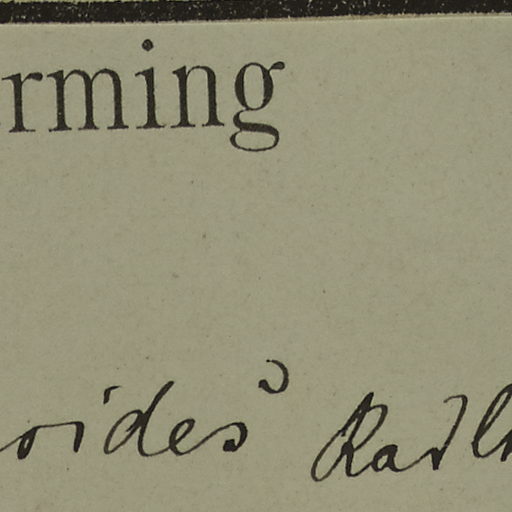 rming
oides Radl